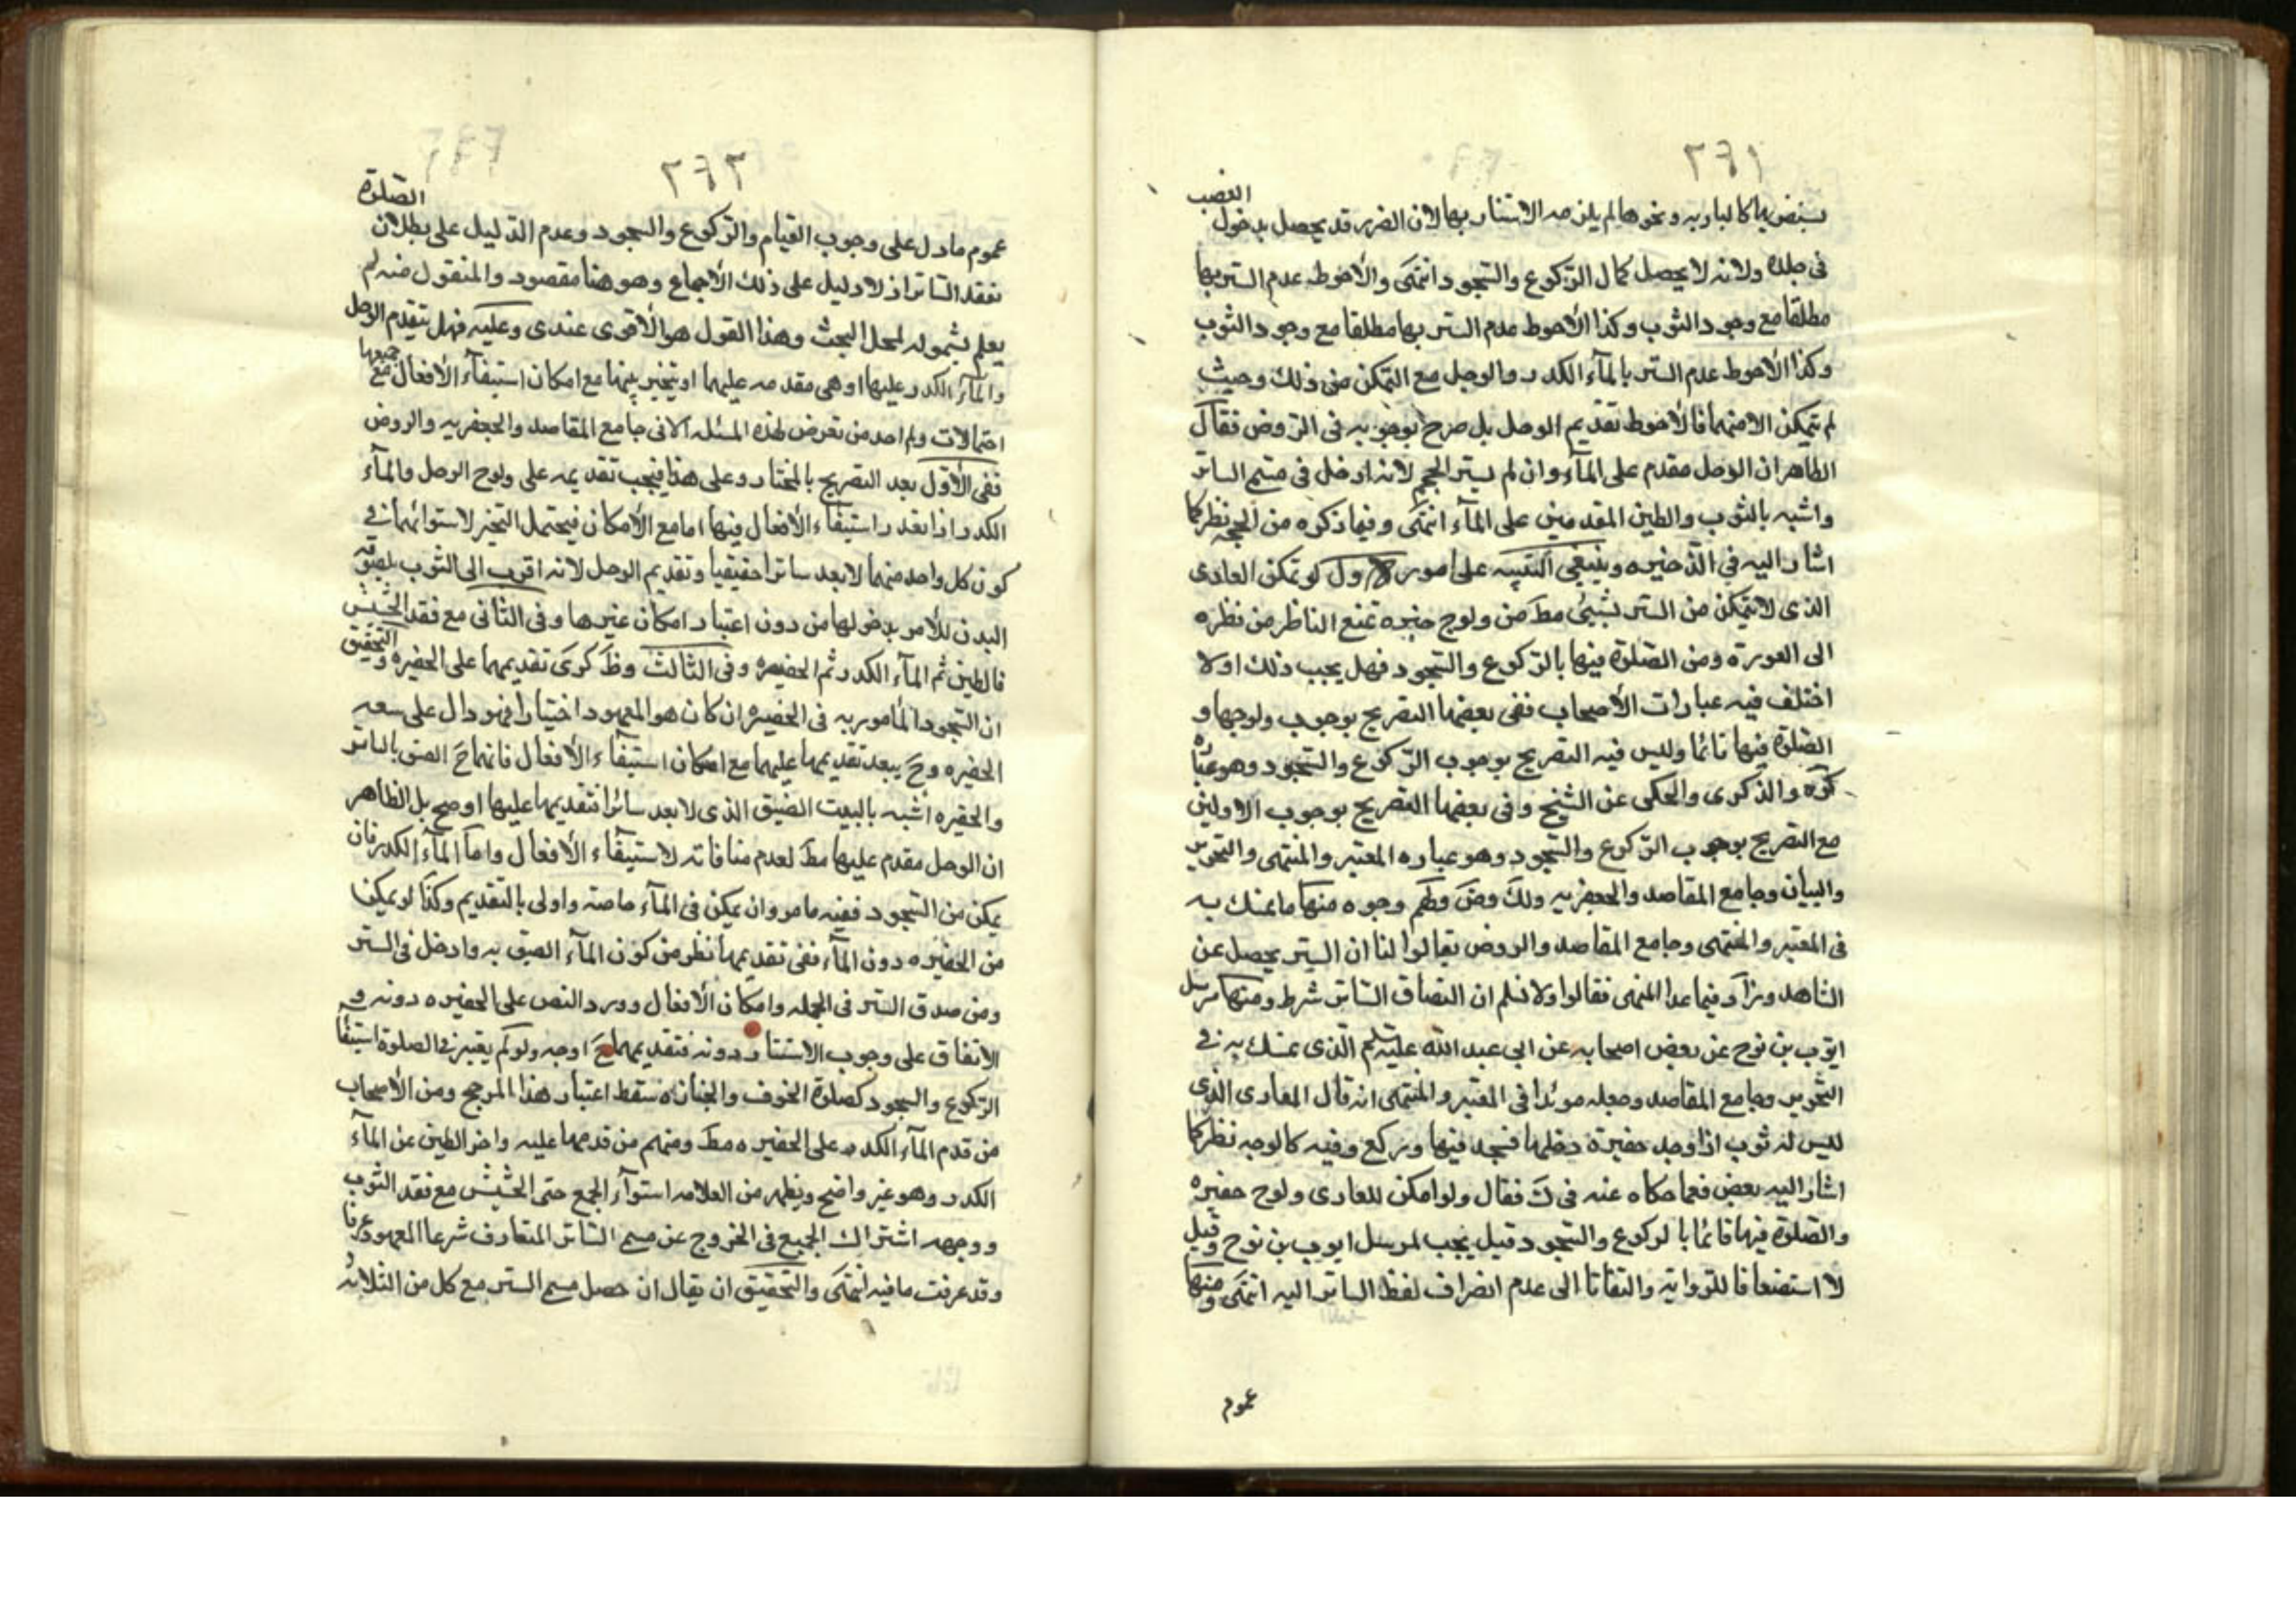 ٢٦١
يستضر بها كالباريه ونحوها لم يلزمه الاستتار بها لان الضرر قد يحصل بدخول القصب
فى جلده ولانه لا يحصل كمال الركوع والسجود انتهى والأحوط عدم الستر بها
مطلقا مع وجود الثوب وكذا الأحوط عدم الستر بها مطلقا مع وجود الثوب
وكذا الأحوط عدم الستر بالمآء الكدر والوحل مع التمكن من ذلك وحيث
لم يتمكن الا منهما فالأحوط تقديم الوحل بل صرح بوجوبه فى الروض فقال
الظاهر ان الوحل مقدم على المآء وان لم يستر الحجم لانه ادخل فى مسمى الساتر
واشبه بالثوب والطين المقدمين على المآء انتهى وفيما ذكره من الحجه نظر كما
اشار اليه فى الذخيره وينبغى التنبيه على امور الاول لو تمكن العارى
الذى لا يتمكن من الستر بشيئ مط من ولوج حفيره تمنع الناظر من نظره
الى العورة ومن الصلوة فيها بالركوع والسجود فهل يجب ذلك اولا
اختلف فيه عبارات الأصحاب ففى بعضها التصريح بوجوب ولوجها و
الصلوة فيها قائما وليس فيه التصريح بوجوب الركوع والسجود وهو عبارة
كره والذكرى والحكى عن الشيخ وفى بعضها التصريح بوجوب الاولين
مع التصريح بوجوب الركوع والسجود وهو عباره المعتبر والمنتهى والتحرير
والبيان وجامع المقاصد والجعفريه ولك وض ولهم وجوه منها ما تمسك به
فى المعتبر والمنتهى وجامع المقاصد والروض فقالوا لنا ان الستر يحصل عن
الشاهد وزاد فيما عدا المنتهى فقالوا ولا نسلم ان التصاق الساتر شرط ومنها مرسل
ايوب بن نوح عن بعض اصحابه عن ابى عبد الله عليه السلم الذى تمسك به فى
التحرير وجامع المقاصد وجعله مؤيدا فى المعتبر والمنتهى انه قال العارى الذى
ليس له ثوب اذا وجد حفيرة دخلها فسجد فيها وركع وفيه كالوجه نظر كما
اشار اليه بعض فيما حكاه عنه فى ك فقال ولو امكن للعارى ولوج حفيره
والصلوة فيها قائما بالركوع والسجود قيل يجب لمرسل ايوب بن نوح وقيل
لا استضعافا للرواية والتفاتا الى عدم انصراف لفظ الساتر اليه انتهى ومنها
عموم
٢٦٢
عموم مادل على وجوب القيام والركوع والسجود وعدم الدليل على بطلان الصلوة
بفقد الساتر اذ لا دليل على ذلك الا الاجماع وهو هنا مقصود والمنقول منه لم
يعلم بشموله لمحل البحث وهذا القول هو الأقوى عندى وعليه فهل يتقدم الوحل
والمآء الكدر عليها او هى مقدمه عليهما او يتخير بينها مع امكان استيفآء الأفعال مع جميعها
احتمالات ولم اجد من تعرض لهذه المسئله الا فى جامع المقاصد والجعفريه والروض
ففى الأول بعد التصريح بالمختار وعلى هذا فيجب تقديمه على ولوج الوحل والمآء
الكدر اذا تعذر استيفآء الأفعال فيها اما مع الأمكان فيحتمل التخير لاستوائهما فى
كون كل واحد منهما لا يعد ساترا حقيقيا وتقديم الوحل لانه اقرب الى الثوب بلصوقه
البدن للأمر بدخولها من دون اعتبار امكان غيرها وفى الثانى مع فقد الحشيش
فالطين ثم المآء الكدر ثم الحفيره وفى الثالث وظ كرى تقديمهما على الحفيره والتحقيق
ان السجود المأمور به فى الحفيره ان كان هو المعهود اختيارا فهو دال على سعه
الحفيره وح يبعد تقديمها عليهما مع امكان استيفآء الأفعال فانهما ح الصق بالساتر
والحفيره اشبه بالبيت الضيق الذى لا يعد ساترا فتقديمهما عليها اوضح بل الظاهر
ان الوحل مقدم عليها مط لعدم منافاته لاستيفآء الأفعال واما المآء الكدر فان
يمكن من السجود ففيه ما مر وان يمكن فى المآء خاصة واولى بالتقديم وكذا لو تمكن
من الحفيره دون المآء ففى تقديمها نظر من كون المآء الصق به وادخل فى الستر
ومن صدق الستر فى الجمله وامكان الافعال وورد النص على الحفيره دونه و
الاتفاق على وجوب الاستتار دونه فتقديمها ح اوجه ولو لم يعتبر فى الصلوة استيفآ
الركوع والسجود كصلوة الخوف والجنازه سقط اعتبار هذا المرجح ومن الأصحاب
من قدم المآء الكدر على الحفيره مط ومنهم من قدمها عليه واخر الطين عن المآء
الكدر وهو غير واضح ويظهر من العلامه استوآء الجمع حتى الحشيش مع فقد الثوب
ووجهه اشتراك الجميع فى الخروج عن مسمى الساتر المتعارف شرعا المعهود عرفا
وقد عرفت ما فيه انتهى والتحقيق ان يقال ان حصل مسمى الستر مع كل من الثلاثه